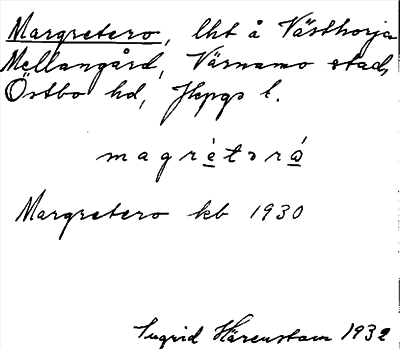 Margretero, lht å Västhorja
Mellangård, Värnamo stad,
Östbo hd, Jkpgs l.
magrètərá
Margretero kb 1930
Ingrid Härenstam 1932